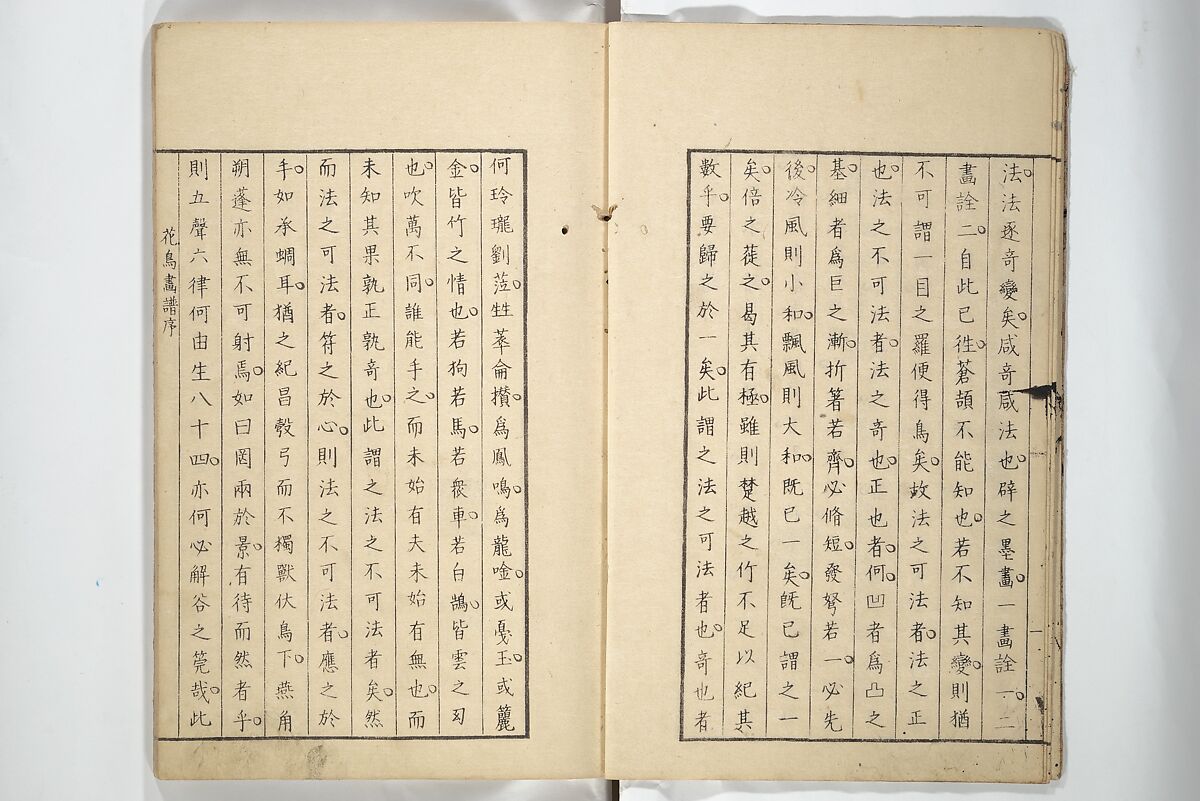 法法逐竒變矣咸竒咸法也辟之墨畫一畫詮一二
畫詮二自此已徃蒼頡不能知也若不知其變則猶
不可謂一目之羅便得鳥矣故法之可法者法之正
也法之不可法者法之竒也正也者何凹者爲凸之
基細者爲巨之漸折箸若齊必脩短發弩若一必先
後冷風則小和飄風則大和既已一矣既已謂之一
矣倍之蓰之曷其有極雖則楚越之竹不足以紀其
數乎要歸之於一矣此謂之法之可法者也竒也者
何玲瓏劉莅甡萃侖攢爲鳳鳴爲龍唫或戛玉或簏
金皆竹之情也若狗若馬若衆車若白鵠皆雲之匃
也吹萬不同誰能手之而未始有夫未始有無也而
未知其果孰正孰竒也此謂之法之不可法者矣然
而法之可法者符之於心則法之不可法者應之於
手如承蜩耳猶之紀昌彀弓而不獨獸伏鳥下燕角
朔蓬亦無不可射焉如曰罔兩於景有待而然者乎
則五聲六律何由生八十四亦何必解谷之筦哉此
花鳥畫譜序